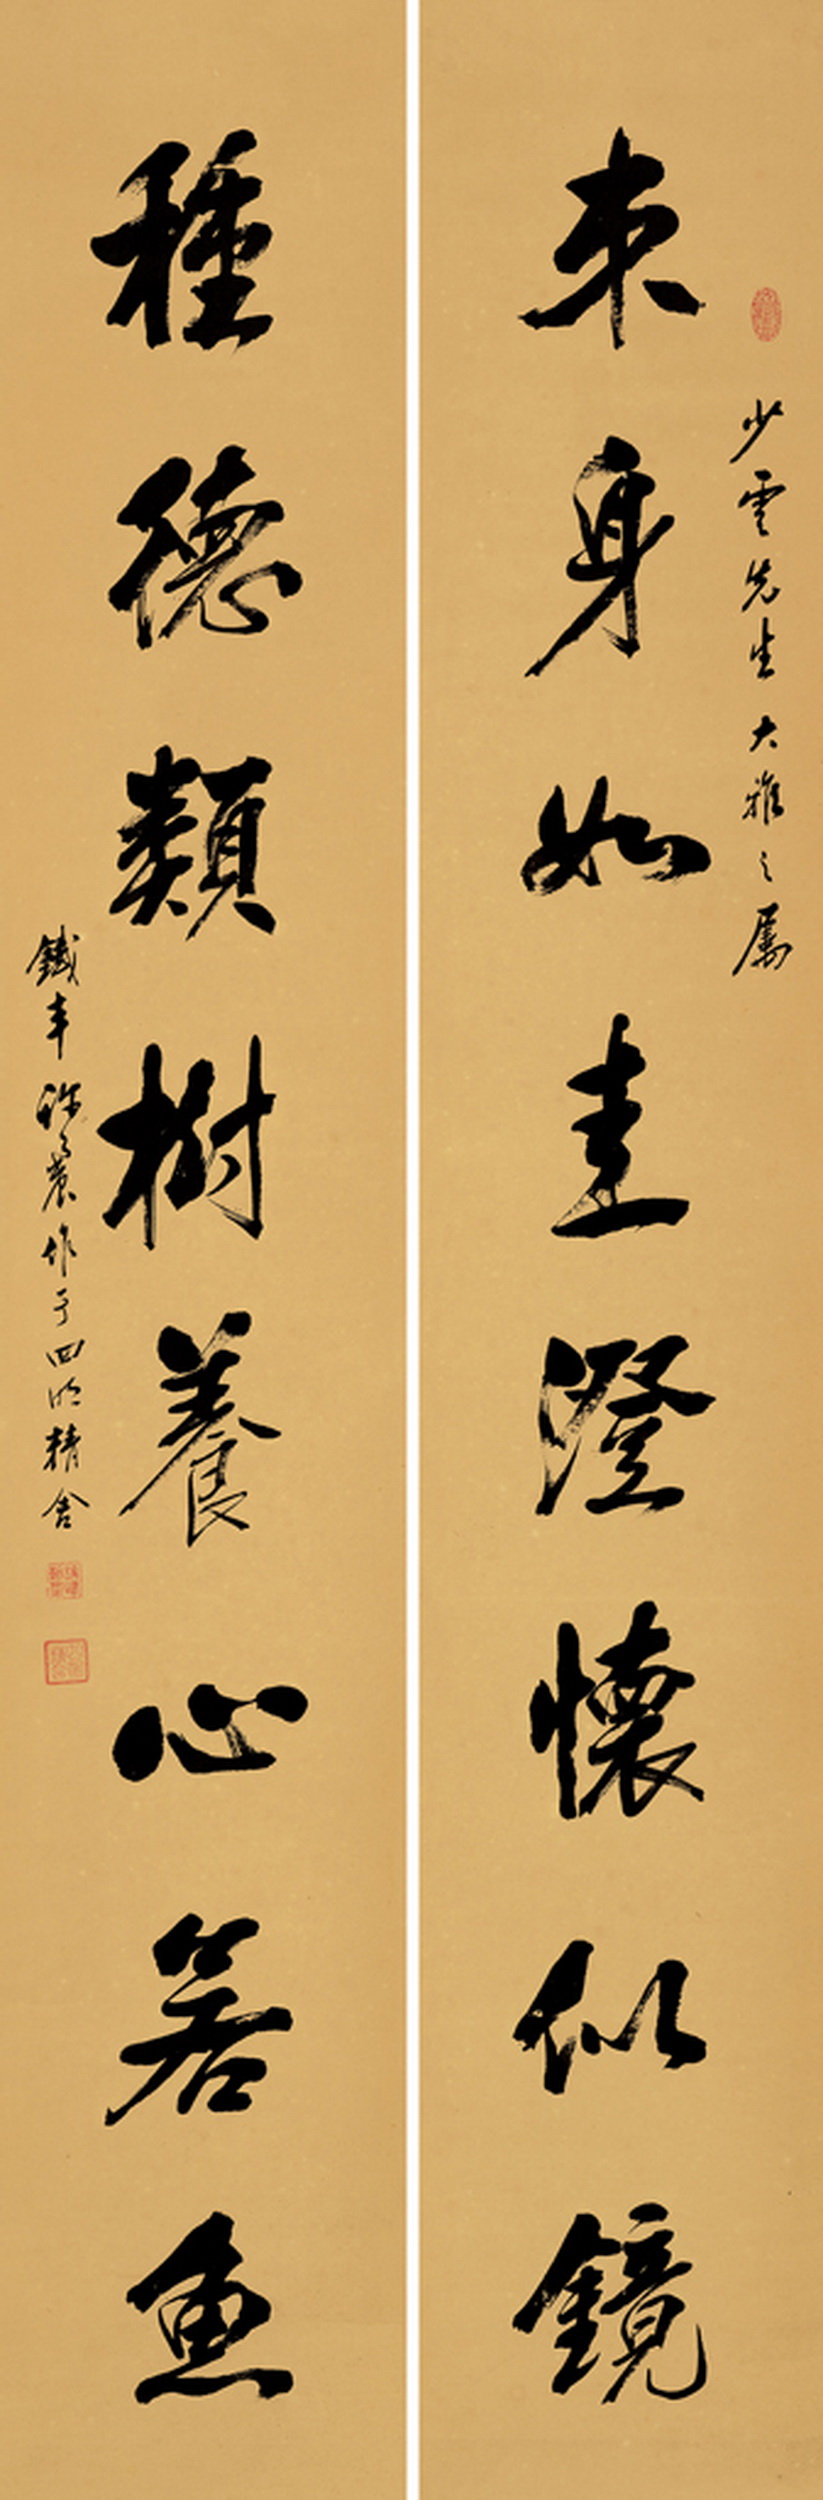 少雲先生大雅之屬
束身如圭澄懷似鏡
種德類樹養心若魚
鐵年 作于四明精舍